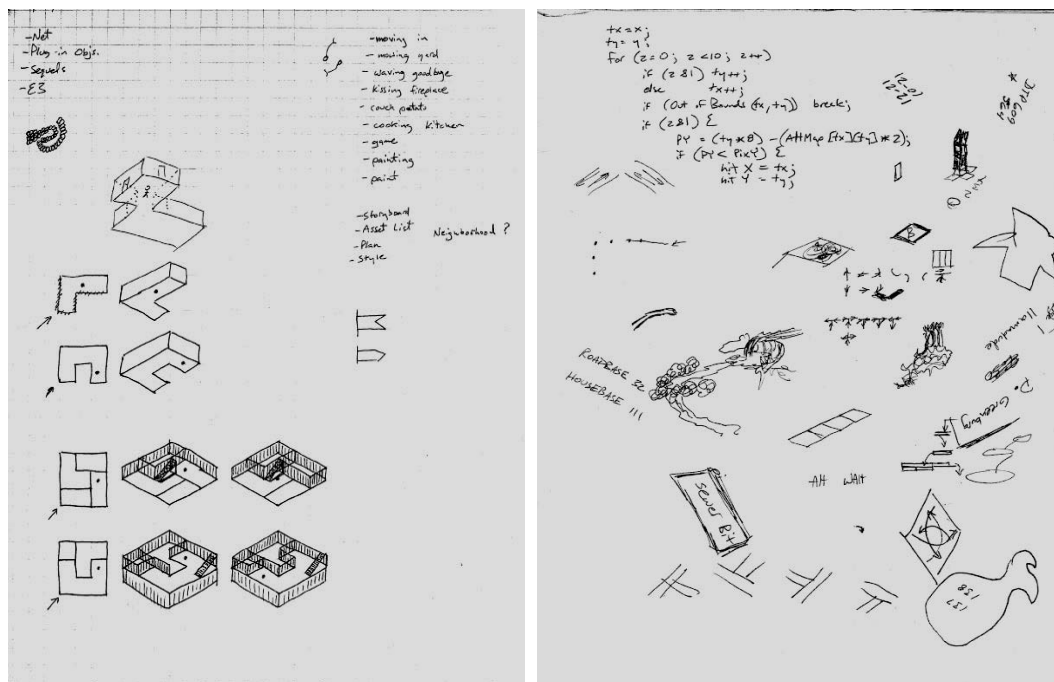 -Net
-Plug-in Objs.
-Sequels
-E3
-moving in
-mowing yard
-waving goodbye
-kissing fireplace
-couch potato
-cooking kitchen
-game
-painting
-paint
-storyboard
-Asset List
-Plan
-Style
Neighborhood ?
tx=x;
ty=y;
for (z=0; z<10; z++)
if (z&1) ty++;
else tx++;
if (Out of Bounds (tx, ty)) break;
if (z&1) {
PY = (ty*8) - (AltMap[tx][ty]*2);
if (PY < PixY) {
hit X = tx;
hit Y = ty;
ROADBASE 32
HOUSEBASE 111
B
D. Greenburg
AH WAH
Sewer Bit
137
138